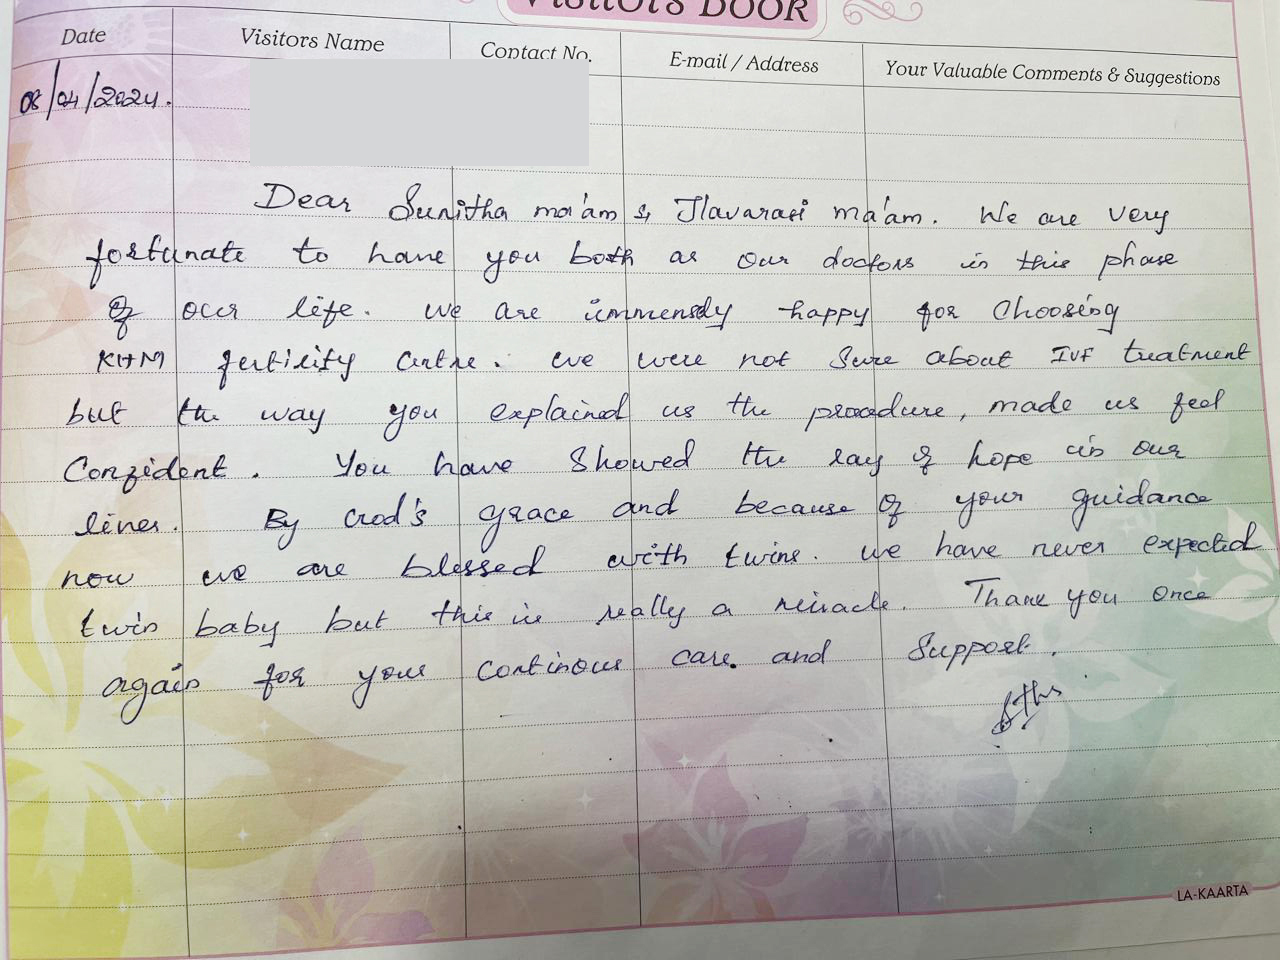 VISITORS BOOK
Date Visitors Name Contact No. E-mail / Address Your Valuable Comments & Suggestions
08/04/2024.
Dear Sunitha ma'am & Ilavarasi ma'am. We are very
fortunate to have you both as our doctors in this phase
of our life. We are immensely happy for Choosing
KHM fertility Centre. We were not Sure about IVF treatment
but the way you explained us the procedure, made us feel
Confident. You have Showed the ray of hope in our
lives. By God's grace and because of your guidance
now we are blessed with twins. We have never expected
twin baby but this is really a miracle. Thank you once
again for your continous care. and Support.
LA-KAARTA